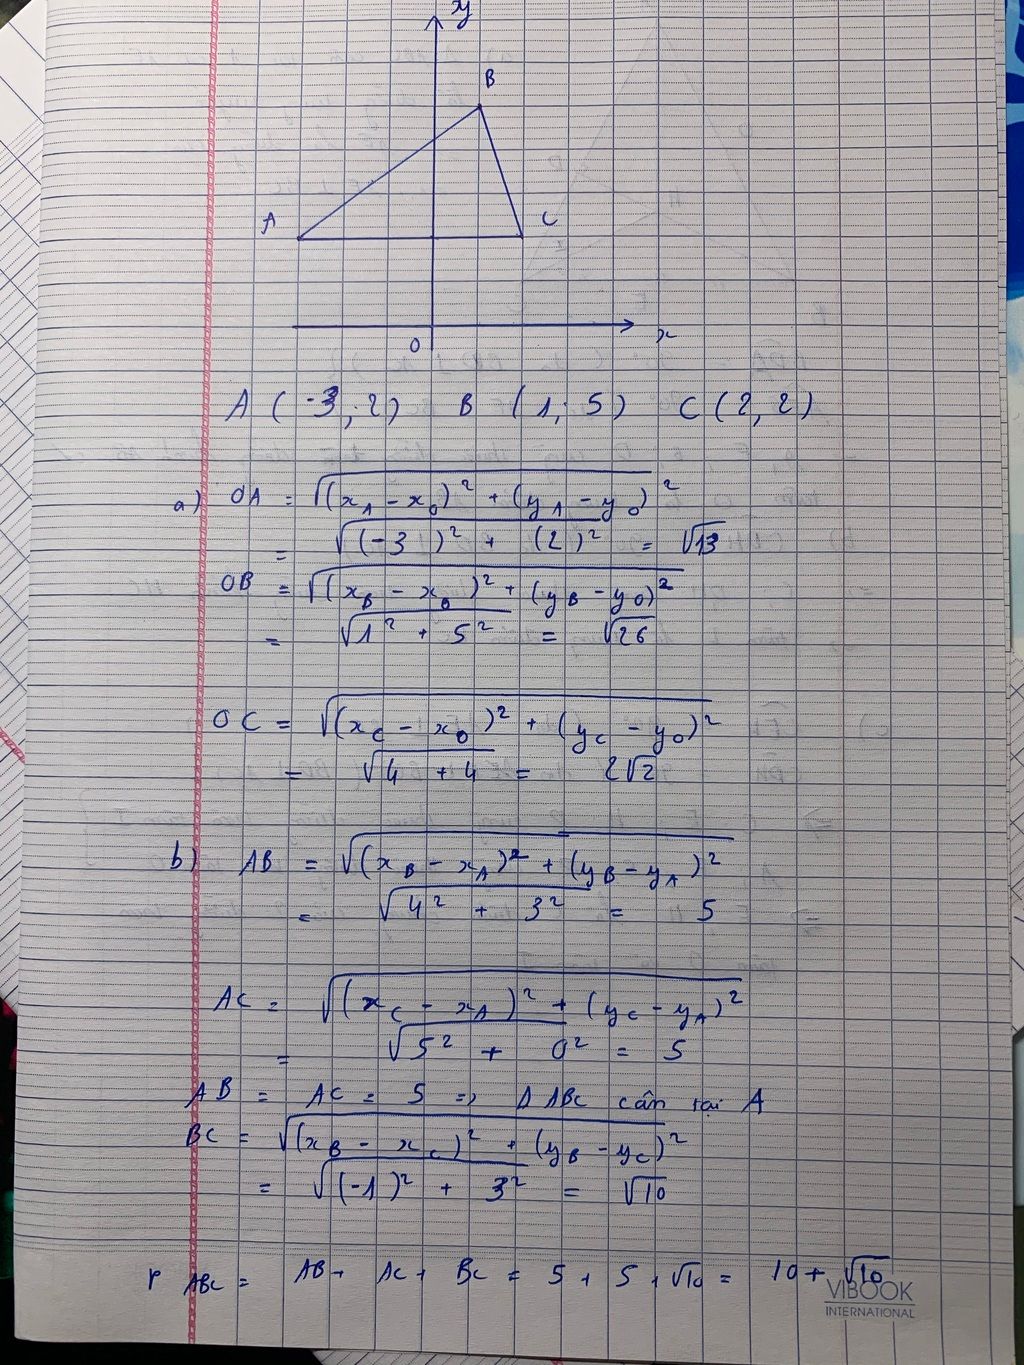 y
B
A
C
O
x
A (-3; 2) B (1; 5) C (2, 2)
a) OA = √(x_A - x_O)² + (y_A - y_O)²
= √(-3)² + (2)² = √13
OB = √(x_B - x_O)² + (y_B - y_O)²
= √1² + 5² = √26
OC = √(x_C - x_O)² + (y_C - y_O)²
= √4 + 4 = 2√2
b) AB = √(x_B - x_A)² + (y_B - y_A)²
= √4² + 3² = 5
AC = √(x_C - x_A)² + (y_C - y_A)²
= √5² + 0² = 5
AB = AC = 5 => Δ ABC cân tại A
BC = √(x_B - x_C)² + (y_B - y_C)²
= √(-1)² + 3² = √10
P ABC = AB + AC + BC = 5 + 5 + √10 = 10 + √10
VIBOOK
INTERNATIONAL